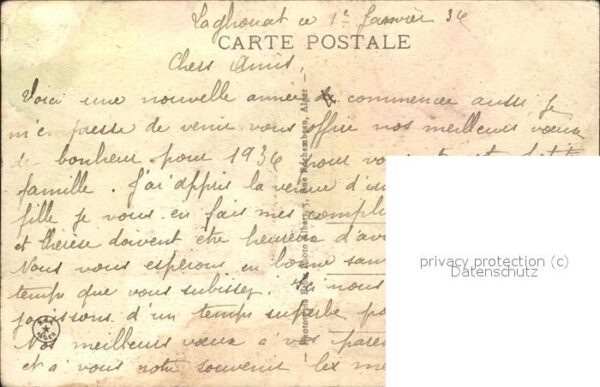 Laghouat ce 1er Janvier 36
CARTE POSTALE
Chers Amis,
Voici une nouvelle année de commencée aussi je
m'en presse de venir vous offrir nos meilleurs vœux
de bonheur pour 1936 pour vous
famille. J'ai appris la venue d'un
fille je vous en fais mes compl
et Thérèse doivent être heureux d'av
Nous vous espérons en bonne san
temps que vous subissez. Ici nous
jouissons d'un temps superbe
Nos meilleurs vœux à vos paren
et à vous notre souvenir les me
privacy protection (c)
Datenschutz
Photo Albert, 5, Rue Rochambeau, Alger